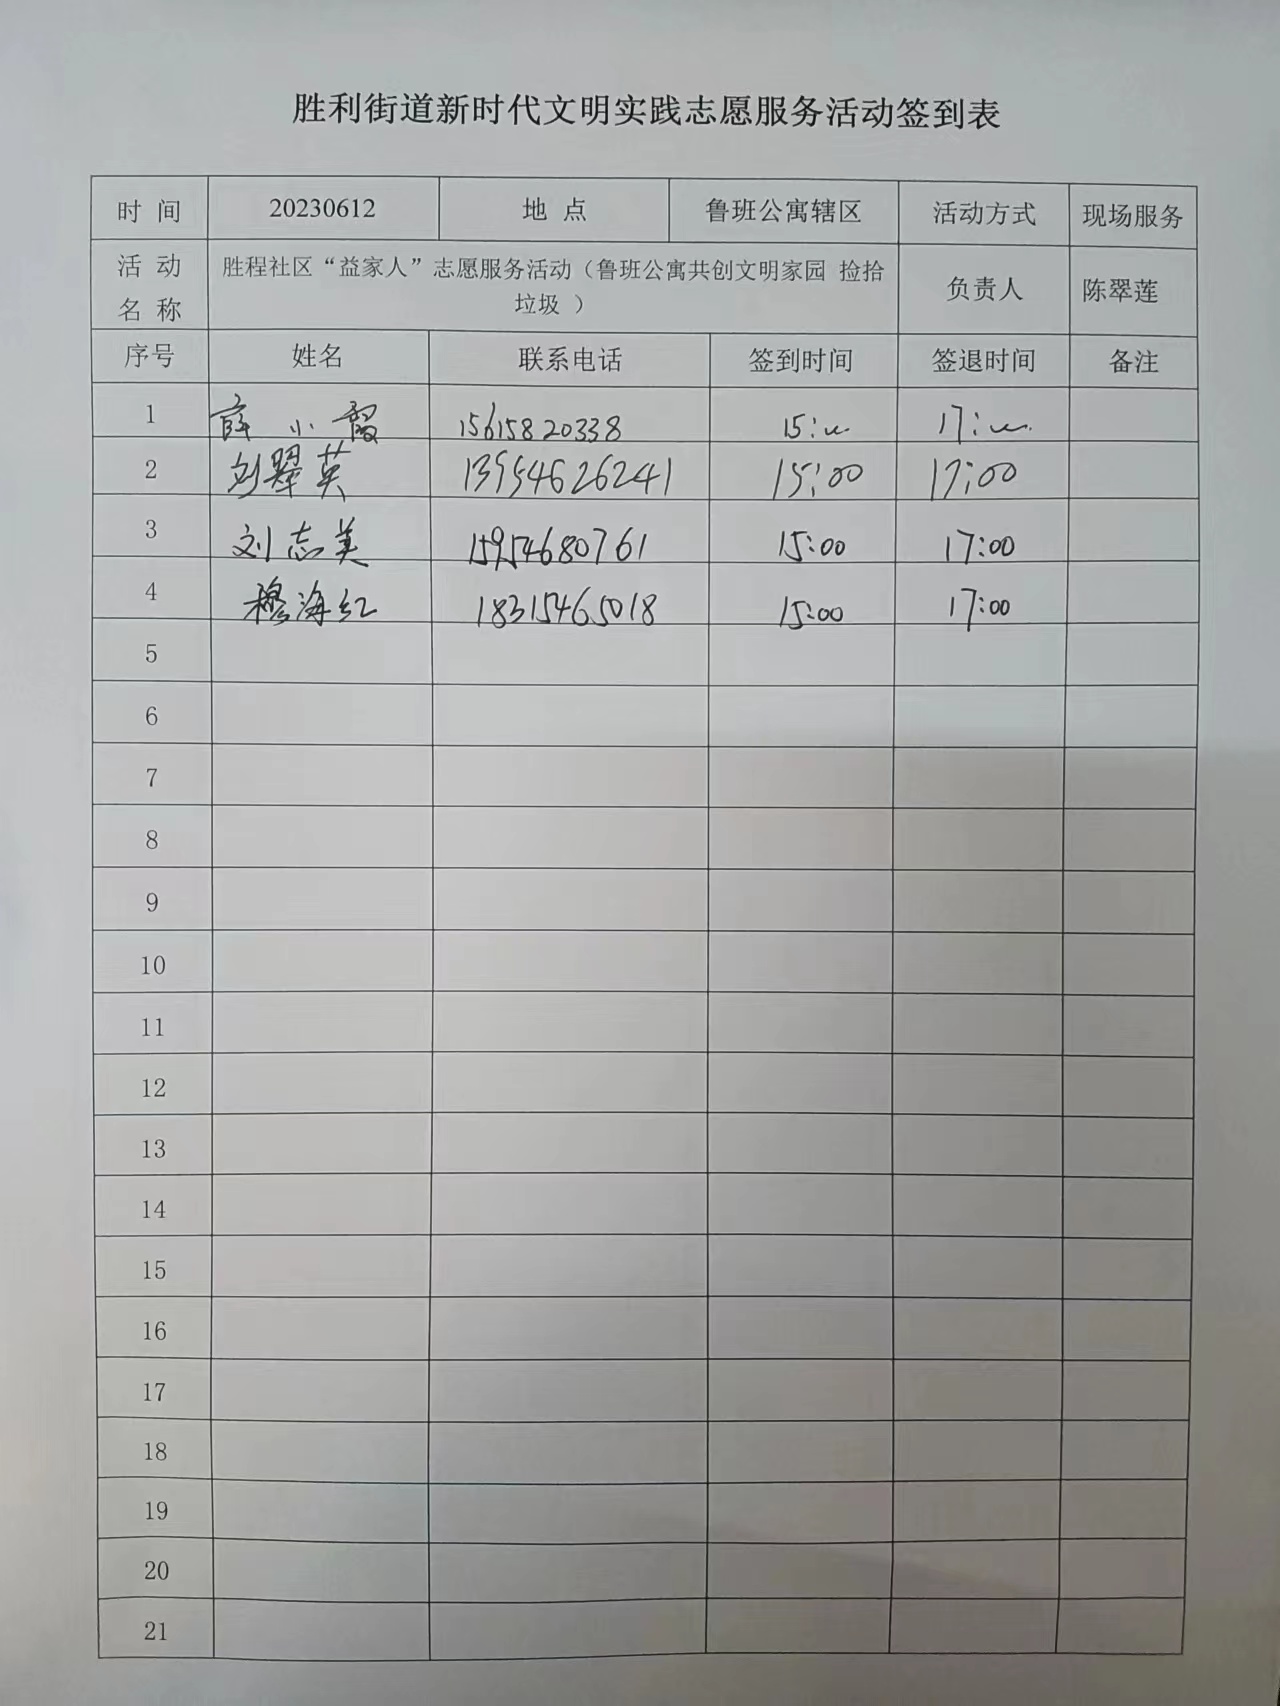 胜利街道新时代文明实践志愿服务活动签到表
时 间 20230612 地 点 鲁班公寓辖区 活动方式 现场服务
活 动 名 称 胜程社区“益家人”志愿服务活动（鲁班公寓共创文明家园 捡拾
垃圾 ） 负责人 陈翠莲
序号 姓名 联系电话 签到时间 签退时间 备注
1 薛小霞 15615820338 15: 17:
2 刘翠英 13954626241 15:00 17:00
3 刘志美 15954680761 15:00 17:00
4 穆海红 18315465018 15:00 17:00
5
6
7
8
9
10
11
12
13
14
15
16
17
18
19
20
21